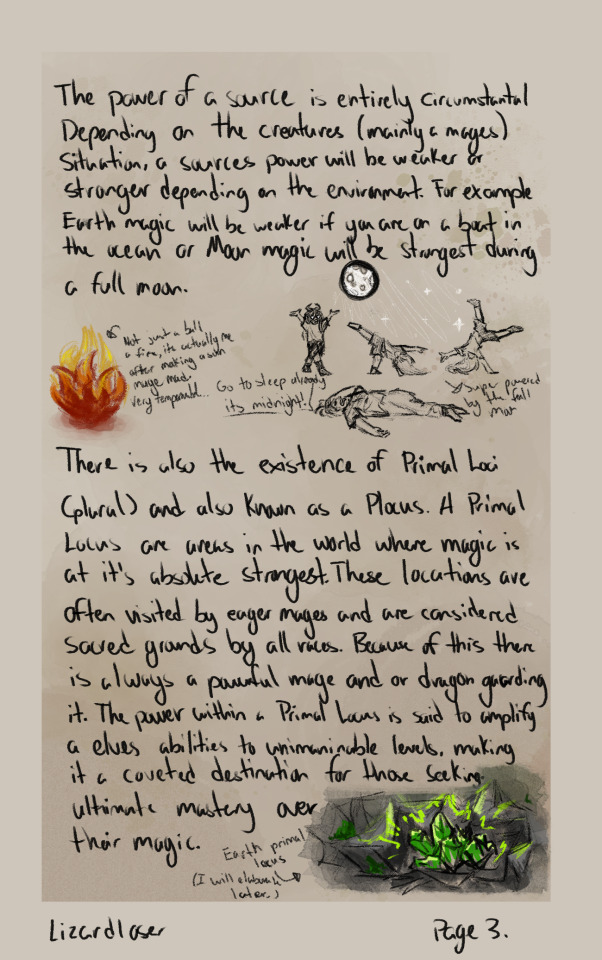 The power of a source is entirely circumstantal
Depending on the creatures (mainly a mages)
Situation, a sources power will be weaker or
stronger depending on the environment. For example
Earth magic will be weaker if you are on a boat in
the ocean or Moon magic will be strongest during
a full moon.
Not just a ball
a fire, its actually me
after making a sun
mage mad.
very temporauld...
Go to sleep already
its midnight!!
super powered
by the full
moon
There is also the existence of Primal Loci
(plural) and also known as a Plocus. A Primal
Locus are areas in the world where magic is
at it's absolute strongest. These locations are
often visited by eager mages and are considered
sacred grounds by all races. Because of this there
is always a powerful mage and or dragon guarding
it. The power within a Primal Locus is said to amplify
a elves abilities to unimaninable levels, making
it a coveted destination for those seeking
ultimate mastery over
their magic.
Earth primal
locus
(I will elaborate
later.)
Lizardlaser
Page 3.